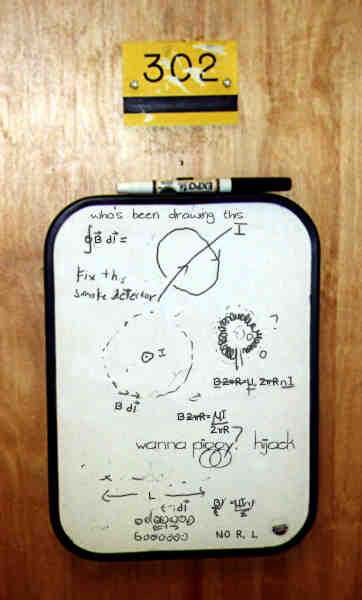 302
EXPO
who's been drawing this
∮B⃗ dl⃗ =
I
Fix this
smoke detector
I
?
B⃗ dl⃗
B2πR=μ 2πRnI
B2πR= μI
2πR
wanna piggy? hijack
x
L
dl⃗
NO R. L